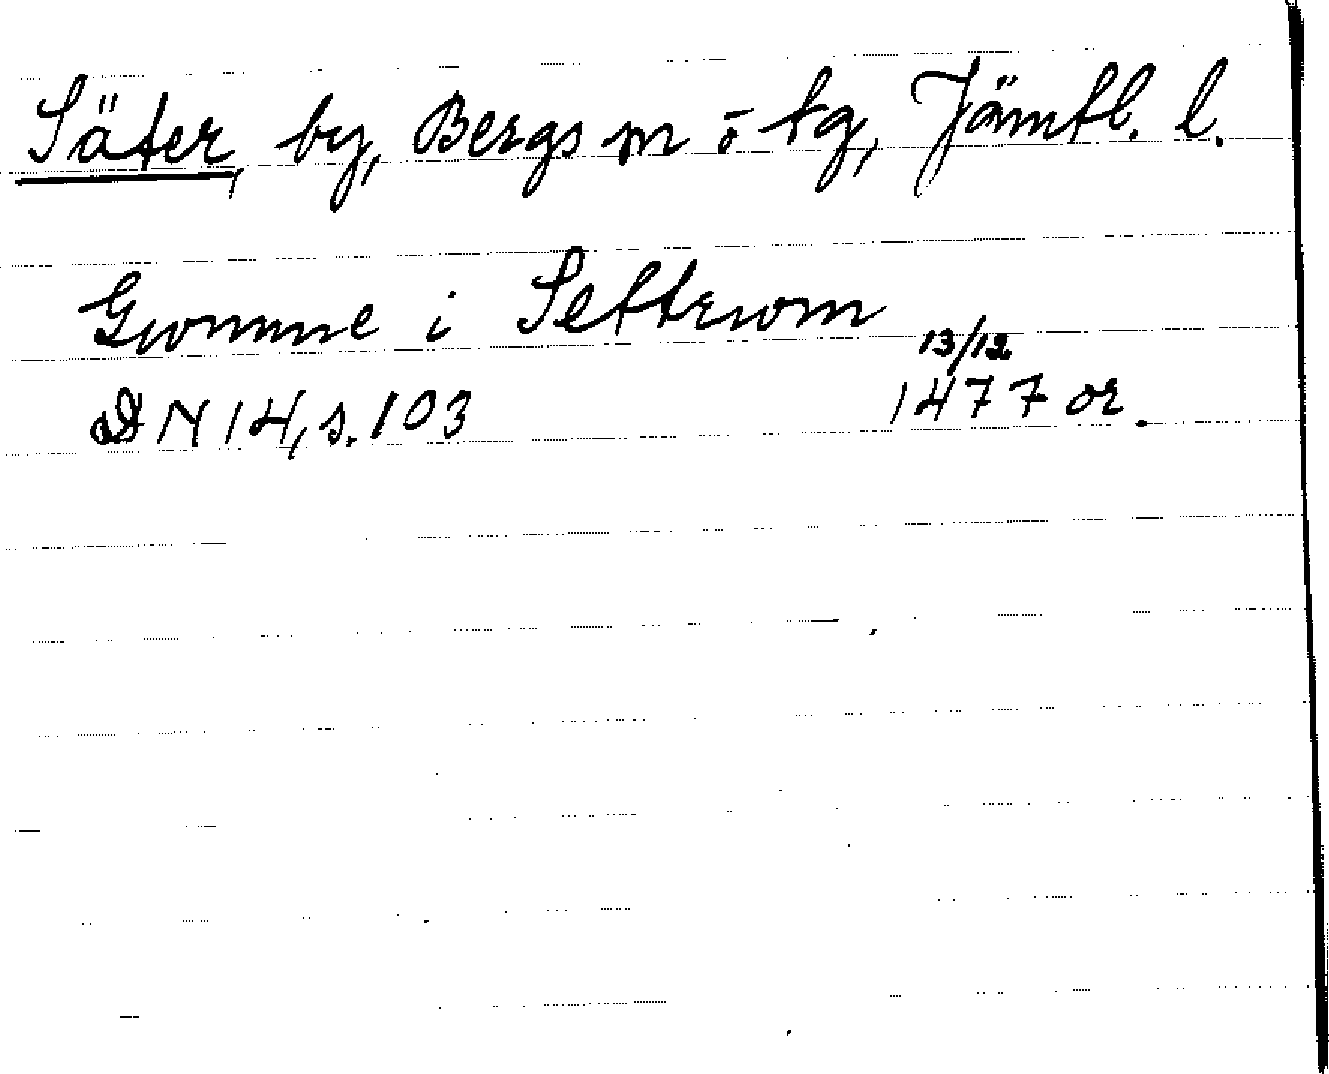 Säter, by, Bergs sn o tg, Jämtl. l.
Gwnnne i Settrwm
13/12
DN 14, s. 103 1477 or.